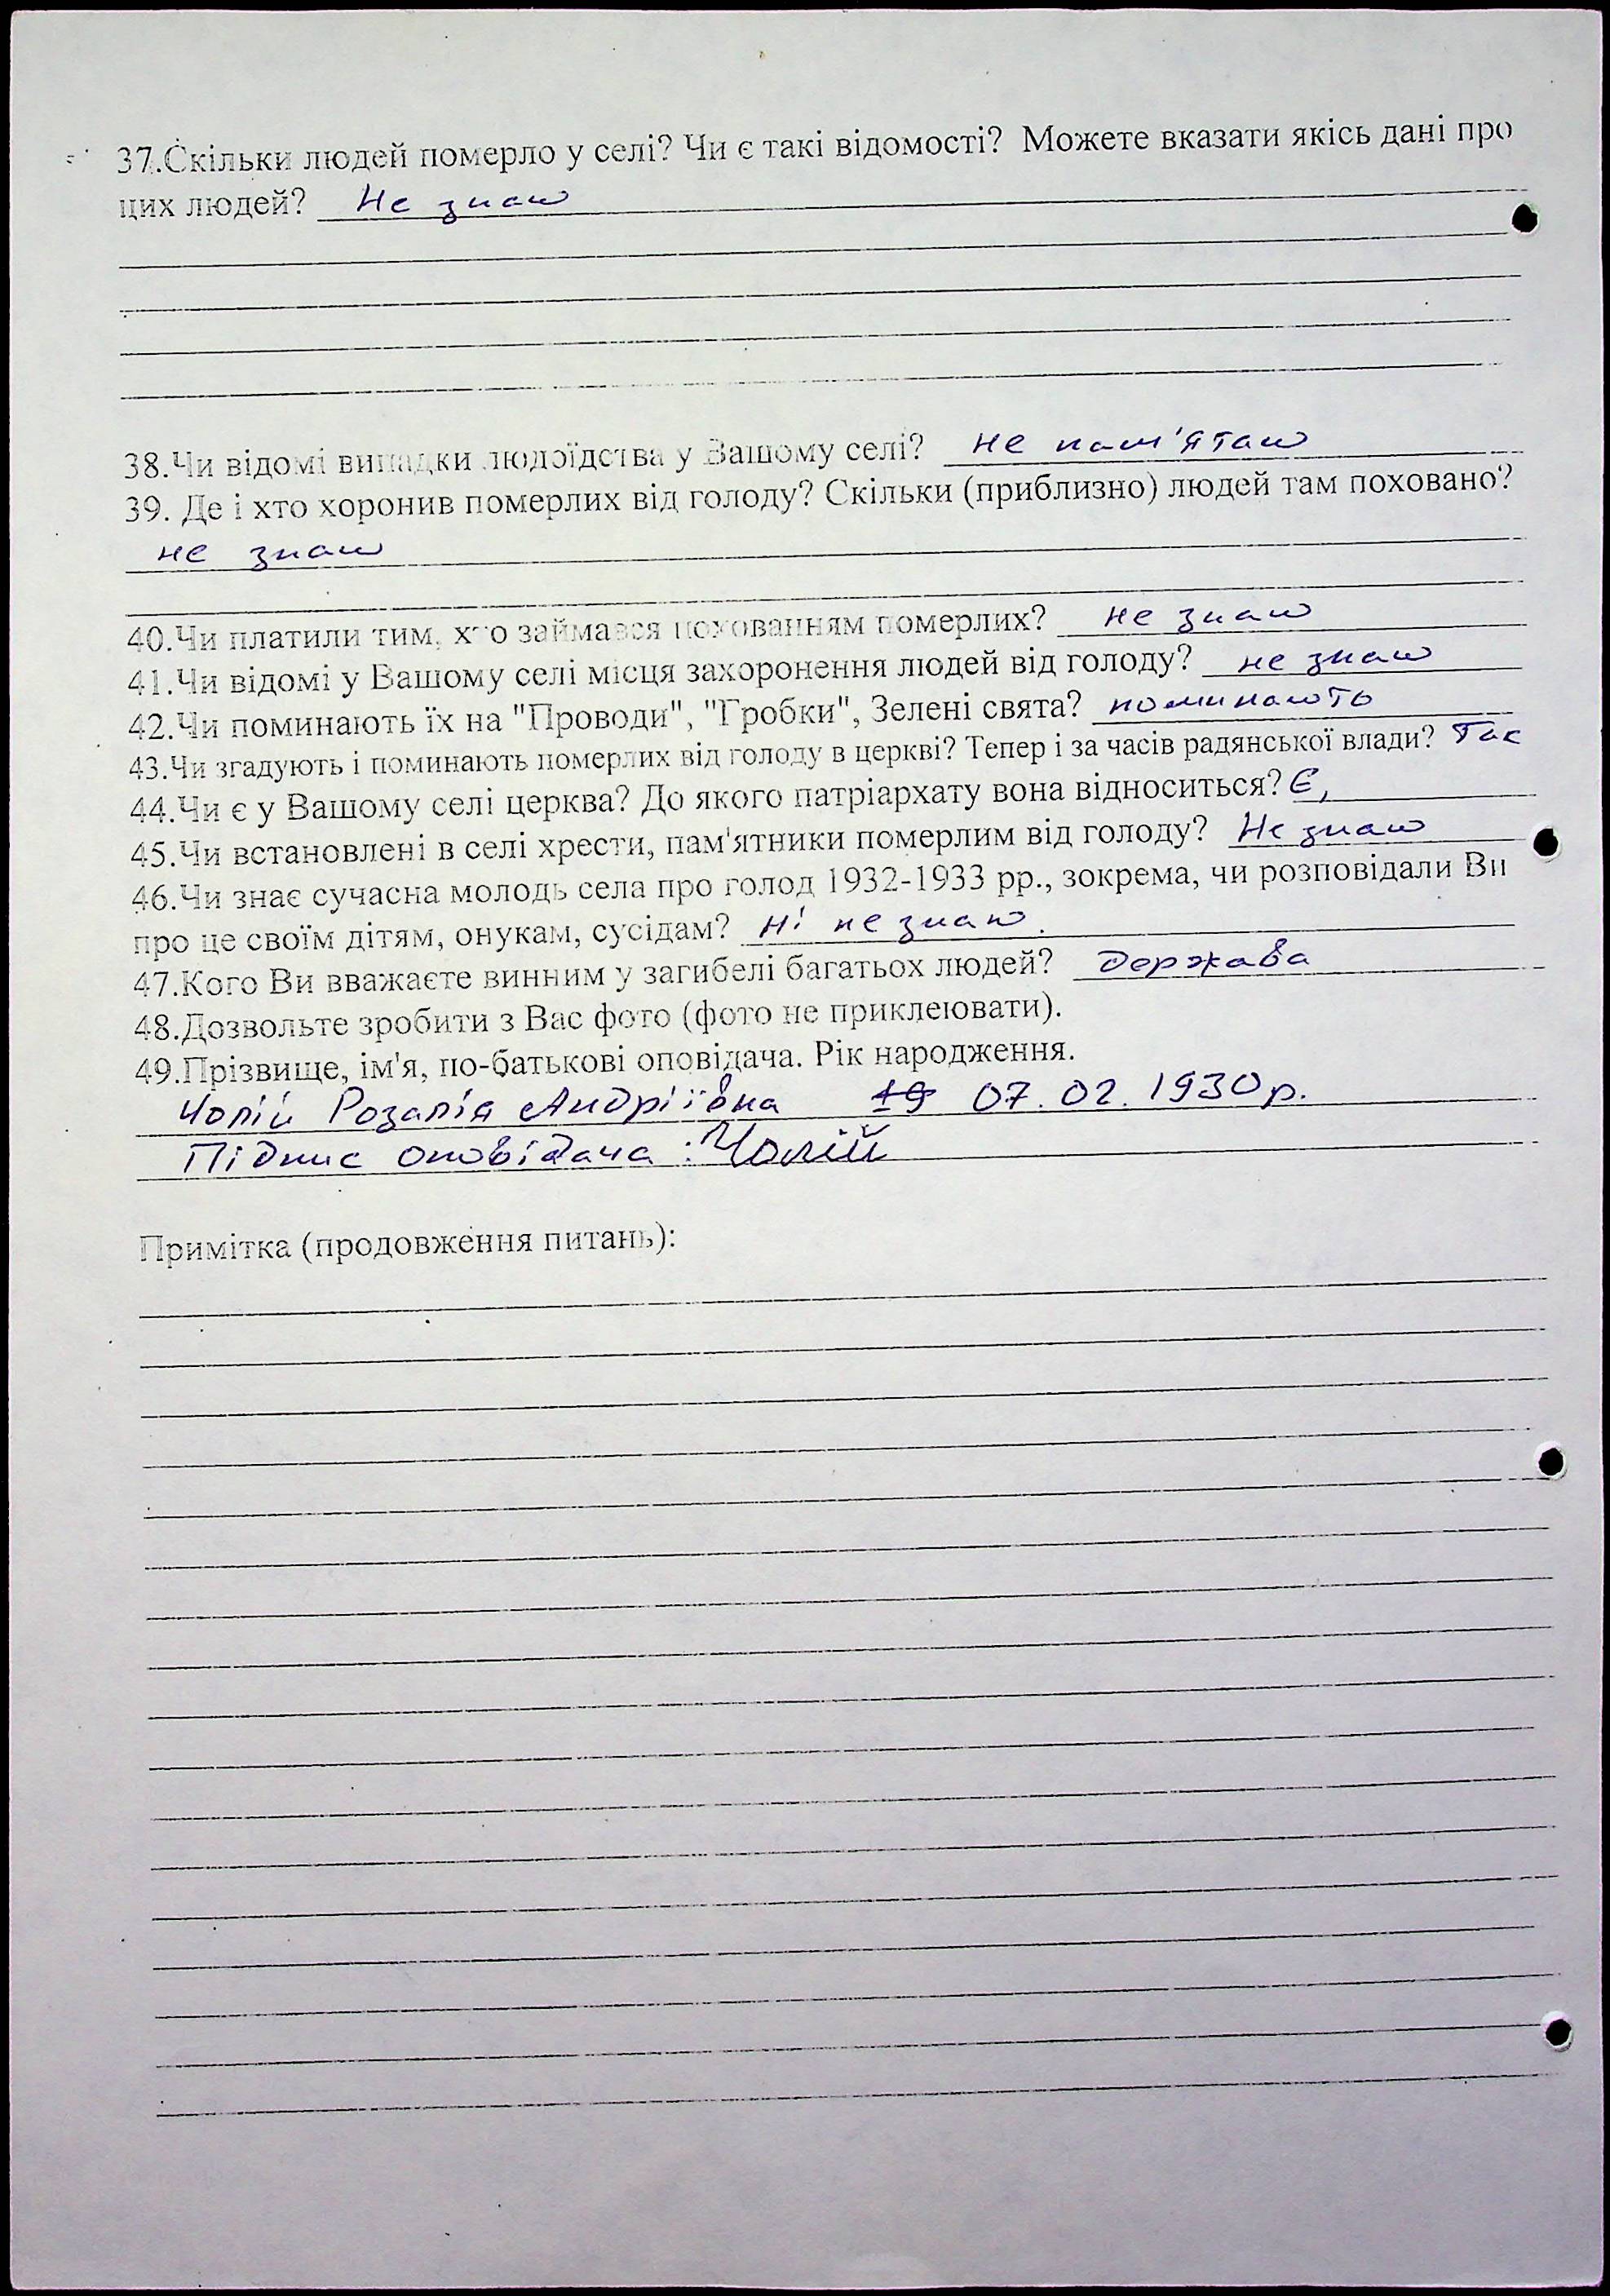 37.Скільки людей померло у селі? Чи є такі відомості? Можете вказати якісь дані про
цих людей? Не знаю
38.Чи відомі випадки людоїдства у Вашому селі? не пам'ятаю
39. Де і хто хоронив померлих від голоду? Скільки (приблизно) людей там поховано?
не знаю
40.Чи платили тим, хто займався похованням померлих? не знаю
41.Чи відомі у Вашому селі місця захоронення людей від голоду? не знаю
42.Чи поминають їх на "Проводи", "Гробки", Зелені свята? поминають
43.Чи згадують і поминають померлих від голоду в церкві? Тепер і за часів радянської влади? Так
44.Чи є у Вашому селі церква? До якого патріархату вона відноситься? Є,
45.Чи встановлені в селі хрести, пам'ятники померлим від голоду? Не знаю
46.Чи знає сучасна молодь села про голод 1932-1933 рр., зокрема, чи розповідали Ви
про це своїм дітям, онукам, сусідам? Ні не знаю.
47.Кого Ви вважаєте винним у загибелі багатьох людей? держава
48.Дозвольте зробити з Вас фото (фото не приклеювати).
49.Прізвище, ім'я, по-батькові оповідача. Рік народження.
Чолій Розалія Андріївна 19 07.02.1930р.
Підпис оповідача : Чолій
Примітка (продовження питань):